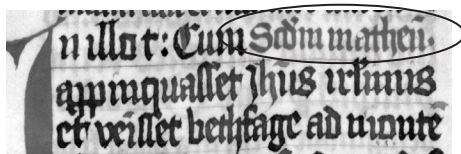 n illo t: Cum Scdm matheu.
appinquasset Jhus irlimis
et venisset bethfage ad monte